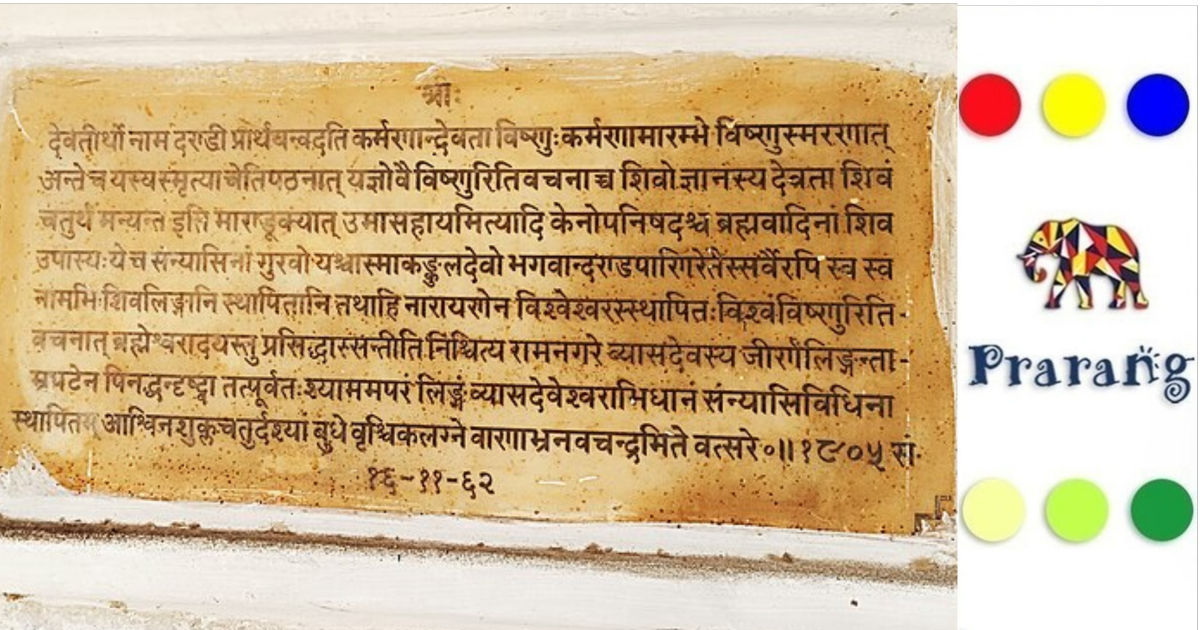 श्रीः
देवतीर्थो नाम दराडी प्रार्थयन्वदति कर्मरणान्देवता विष्णुःकर्मरणामारम्भे विष्णुस्मररणात्
अन्ते च यस्यस्मृत्याचेतिपठनात् यज्ञोवै विष्णुरितिवचनाच्च शिवो ज्ञानस्य देवता शिवं
चतुर्थ मन्यन्त इति माराडूक्यात् उमासहायमित्यादि केनोपनिषदश्च ब्रह्मवादिनां शिव
उपास्यःये च संन्यासिनां गुरवो यश्चास्माकङ्कुलदेवो भगवान्दराडपारिगरेतैस्सर्वैरपि स्व स्व
नामभिःशिवलिङ्गानि स्थापितानि तथाहि नारायरगेन विश्वेश्वरस्स्थापितःविश्वंविष्णुरिति-
वचनात् ब्रह्मेश्वरादयस्तु प्रसिद्धास्सन्तीति निश्चित्य रामनगरे व्यासदेवस्य जीर्णंलिङ्गन्ता-
म्रपटेन पिनद्धन्दृष्ट्वा तत्पूर्वतःश्याममपरं लिङ्गं व्यासदेवेश्वराभिधानं संन्यासिविधिना
स्थापितम् आश्विनशुक्लचतुर्दश्यां बुधे वृश्चिकलग्ने वारणाभ्रनवचन्द्रमिते वत्सरे०॥१९०५ सं.
१६-११-६२
Prarang